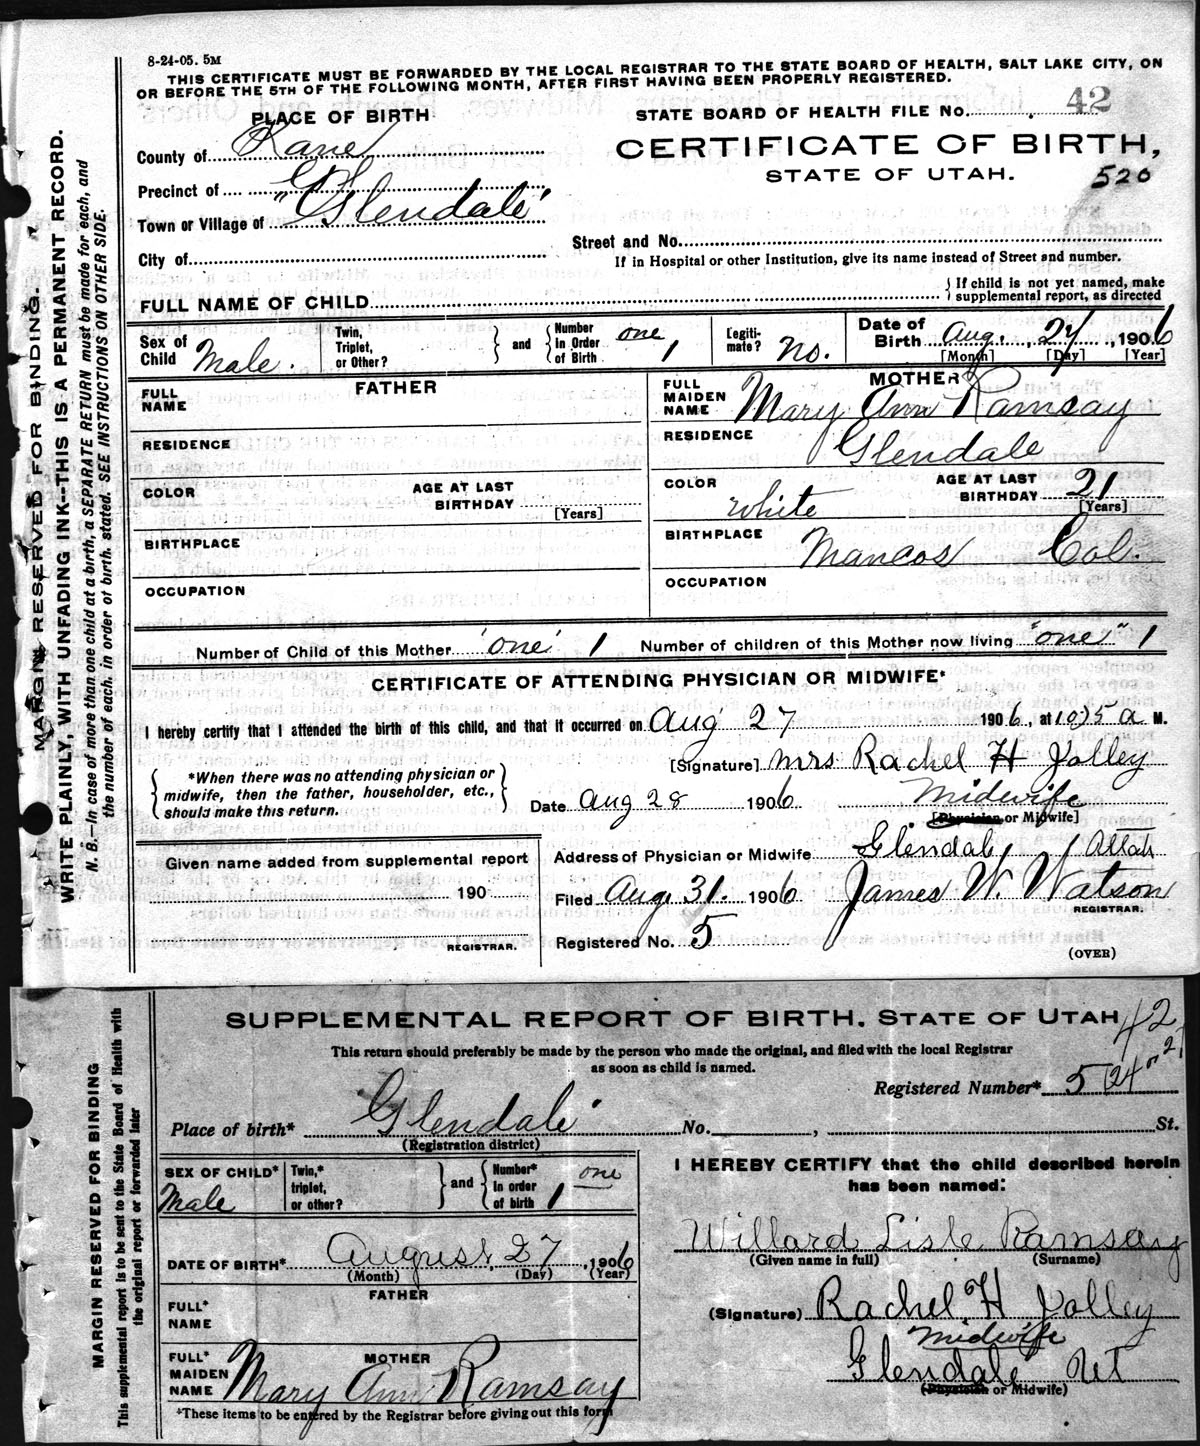 8-24-05. 5M
THIS CERTIFICATE MUST BE FORWARDED BY THE LOCAL REGISTRAR TO THE STATE BOARD OF HEALTH, SALT LAKE CITY, ON
OR BEFORE THE 5TH OF THE FOLLOWING MONTH, AFTER FIRST HAVING BEEN PROPERLY REGISTERED.
MARGIN RESERVED FOR BINDING.
WRITE PLAINLY, WITH UNFADING INK--THIS IS A PERMANENT RECORD.
N. B.—In case of more than one child at a birth, a SEPARATE RETURN must be made for each, and
the number of each, in order of birth, stated. SEE INSTRUCTIONS ON OTHER SIDE.
PLACE OF BIRTH
County of Kane
Precinct of
Town or Village of "Glendale"
City of
STATE BOARD OF HEALTH FILE No. 42
CERTIFICATE OF BIRTH,
STATE OF UTAH. 520
Street and No.
If in Hospital or other Institution, give its name instead of Street and number.
FULL NAME OF CHILD
If child is not yet named, make
supplemental report, as directed
Sex of Child Male.
Twin, Triplet, or Other?
and
Number in Order of Birth one 1
Legitimate? no.
Date of Birth Aug. 27, 1906
[Month] [Day] [Year]
FATHER
FULL NAME
RESIDENCE
COLOR AGE AT LAST BIRTHDAY
[Years]
BIRTHPLACE
OCCUPATION
MOTHER
FULL MAIDEN NAME Mary Ann Ramsay
RESIDENCE Glendale
COLOR White AGE AT LAST BIRTHDAY 21
[Years]
BIRTHPLACE Mancos Col.
OCCUPATION
Number of Child of this Mother 'one' 1 Number of children of this Mother now living "one" 1
CERTIFICATE OF ATTENDING PHYSICIAN OR MIDWIFE*
I hereby certify that I attended the birth of this child, and that it occurred on Aug 27 1906, at 1035 a M.
*When there was no attending physician or
midwife, then the father, householder, etc.,
should make this return.
[Signature] Mrs Rachel H Jolley
Date Aug 28 1906 Midwife
[Physician or Midwife]
Given name added from supplemental report
190
REGISTRAR.
Address of Physician or Midwife Glendale Utah
Filed Aug, 31. 1906 James W. Watson
REGISTRAR.
Registered No. 5
(OVER)
MARGIN RESERVED FOR BINDING
This supplemental report is to be sent to the State Board of Health with
the original report or forwarded later
SUPPLEMENTAL REPORT OF BIRTH. STATE OF UTAH 42
This return should preferably be made by the person who made the original, and filed with the local Registrar
as soon as child is named.
Registered Number* 5
Place of birth* Glendale No. , St.
(Registration district)
SEX OF CHILD* Male
Twin,* triplet, or other?
and
Number* in order of birth 1 one
DATE OF BIRTH* August, 27, 1906
(Month) (Day) (Year)
FATHER
FULL* NAME
MOTHER
FULL* MAIDEN NAME Mary Ann Ramsay
*These items to be entered by the Registrar before giving out this form
I HEREBY CERTIFY that the child described herein
has been named:
Willard Lisle Ramsay
(Given name in full) (Surname)
(Signature) Rachel H Jolley
Midwife
Glendale Ut
(Physician or Midwife)